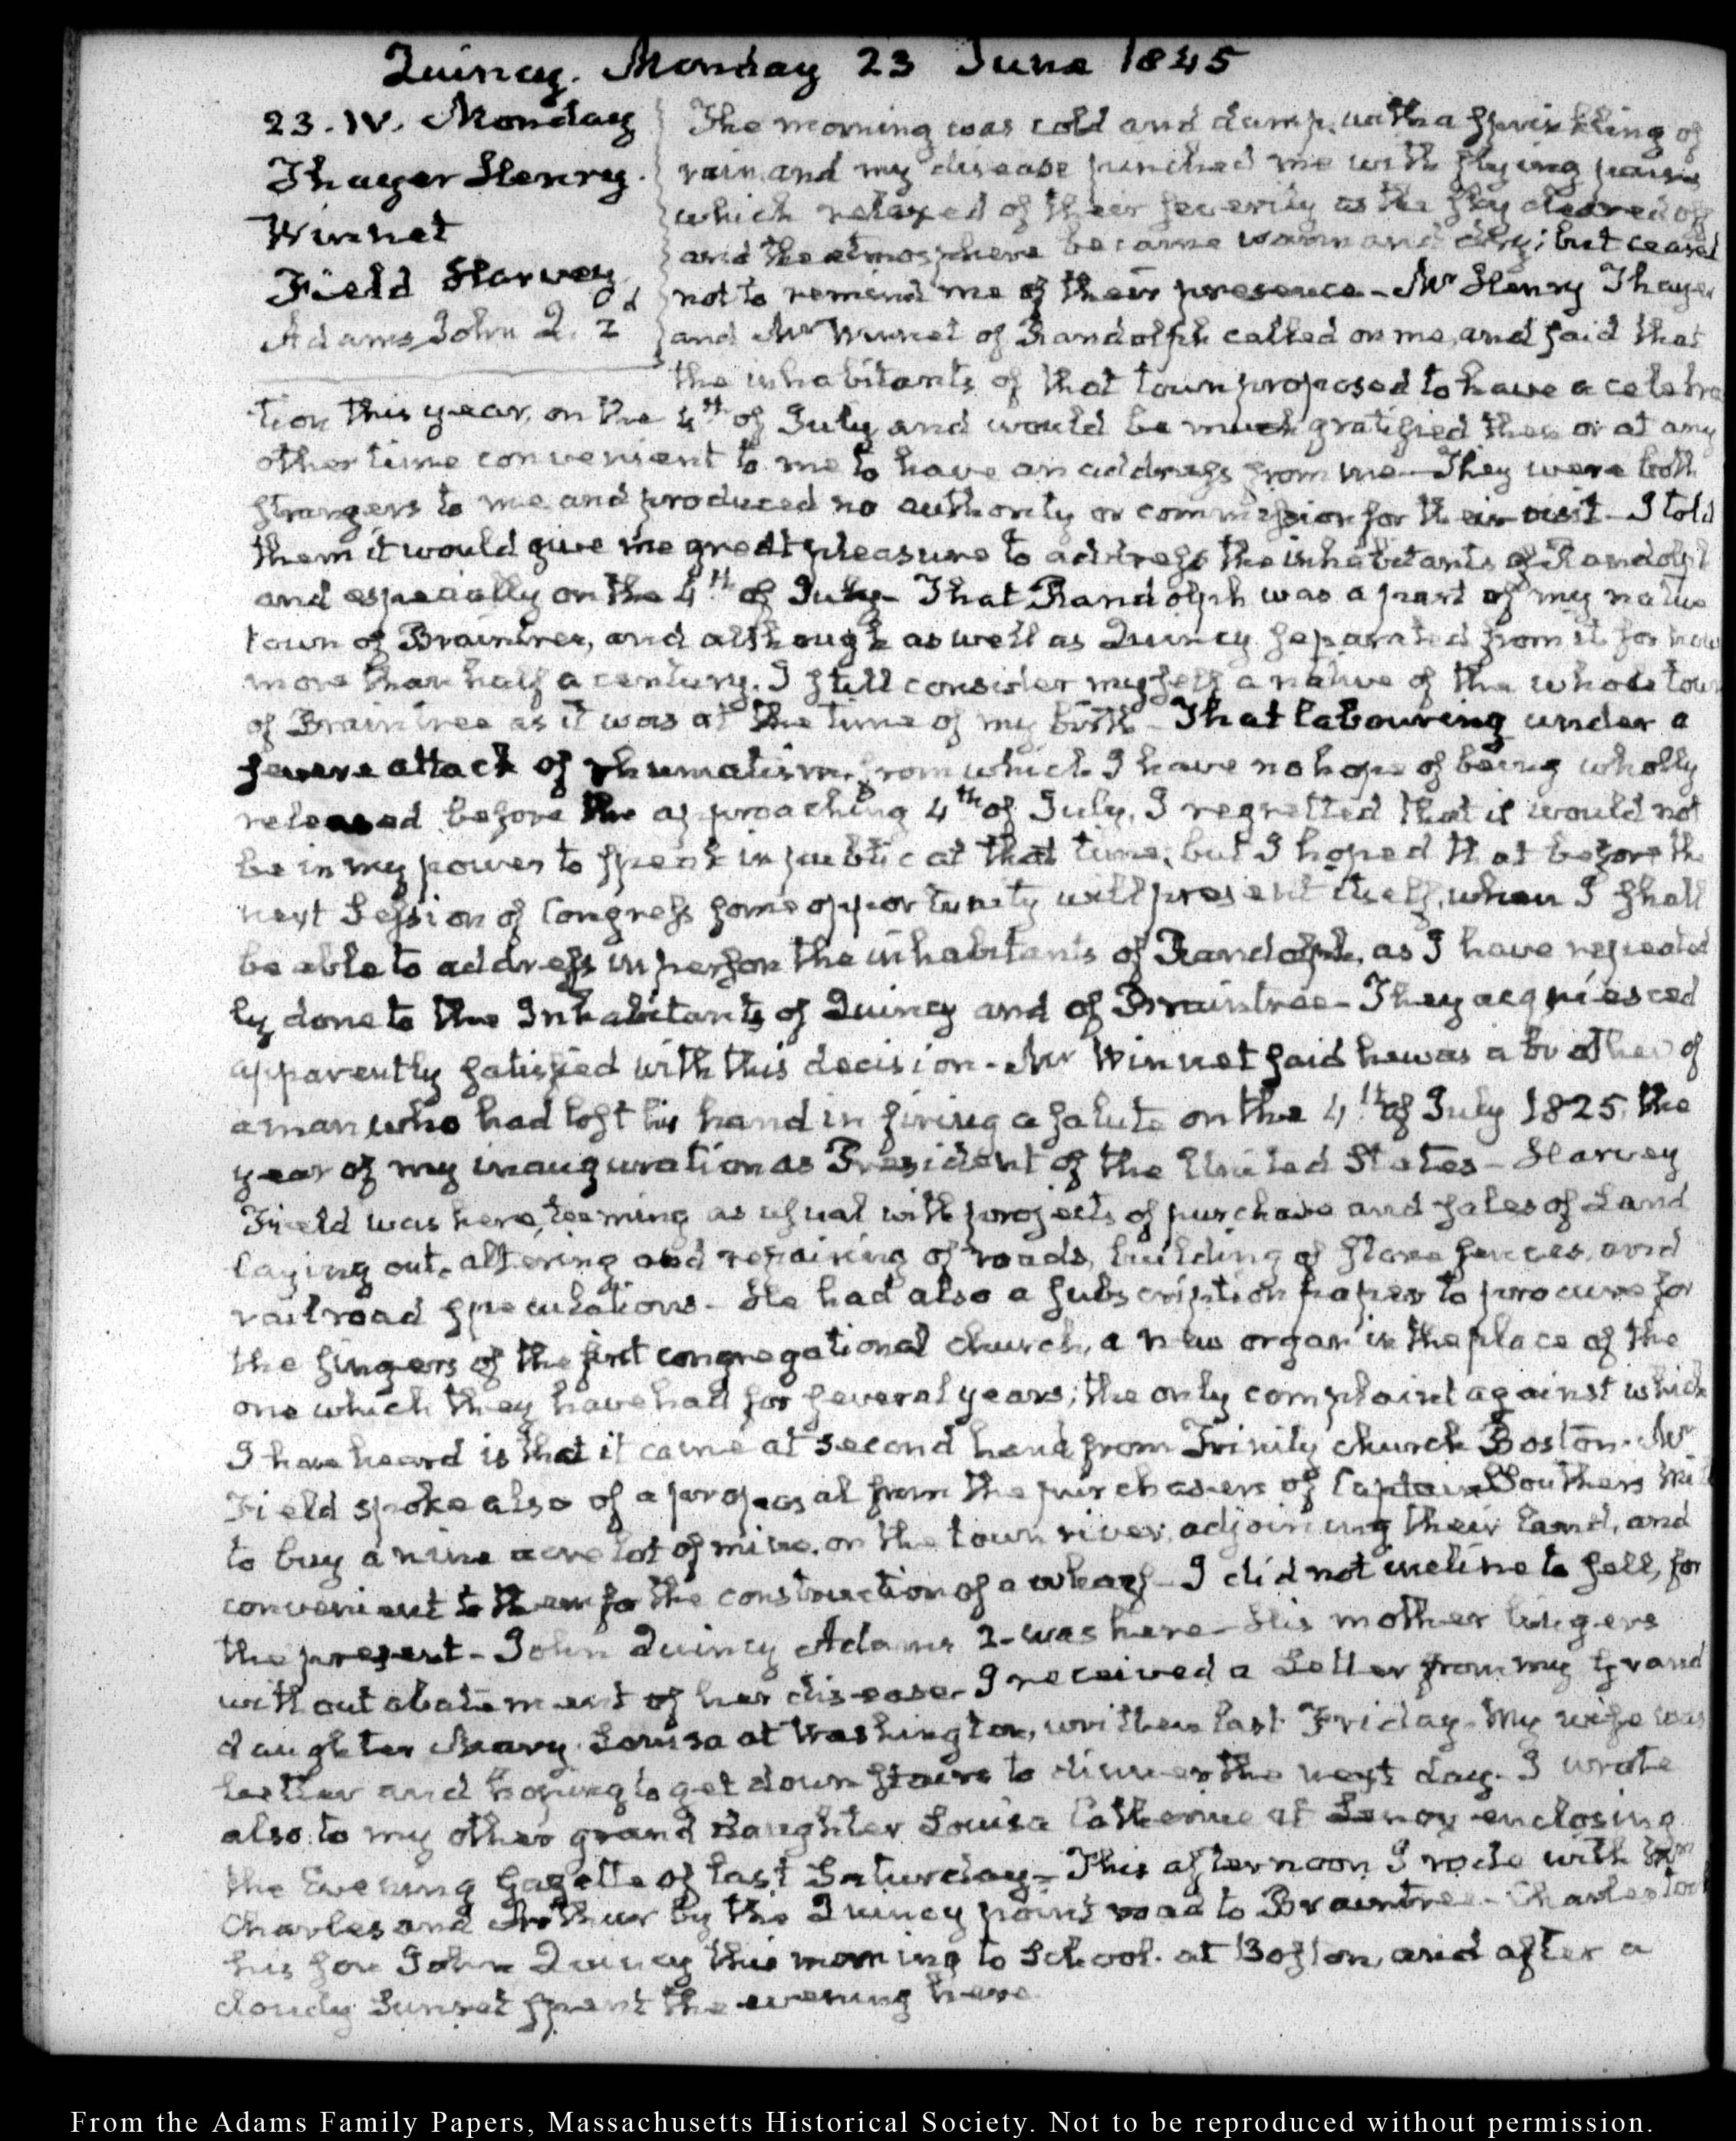 Quincy. Monday 23 June 1845
23. IV. Monday
Thayer Henry.
Winnet
Field Harvey
Adams John Q. 2d
The morning was cold and damp, with a sprinkling of
rain, and my disease pinched me with flying pains
which relaxed of their severity as the sky cleared off
and the atmosphere became warm and dry; but ceased
not to remind me of their presence - Mr Henry Thayer
and Mr Winnet of Randolph called on me, and said that
the inhabitants of that town proposed to have a celebra
tion this year, on the 4th of July and would be much gratified then or at any
other time convenient to me to have an address from me - They were both
strangers to me and produced no authority or commission for their visit - I told
them it would give me great pleasure to address the inhabitants of Randolph
and especially on the 4th of July - That Randolph was a part of my native
town of Braintree, and although as well as Quincy separated from it for now
more than half a century, I still consider myself a native of the whole town
of Braintree as it was at the time of my birth - That labouring under a
severe attack of rhumatism, from which I have no hope of being wholly
released before the approaching 4th of July, I regretted that it would not
be in my power to speak in public at that time; but I hoped that before the
next Session of Congress some opportunity will present itself, when I shall
be able to address in person the inhabitants of Randolph, as I have repeated
ly done to the Inhabitants of Quincy and of Braintree - They acquiesced
apparently satisfied with this decision - Mr Winnet said he was a brother of
a man who had lost his hand in firing a salute on the 4th of July 1825. the
year of my inauguration as President of the United States - Harvey
Field was here, teeming as usual with projects of purchase and sales of Land
laying out, altering and repairing of roads, building of stone fences, and
railroad speculations - He had also a subscription paper to procure for
the singers of the first congregational church, a new organ in the place of the
one which they have had for several years; the only complaint against which
I have heard is that it came at second hand from Trinity church Boston - Mr
Field spoke also of a proposal from the purchasers of Captain Souther's Mill
to buy a nine acre lot of mine, on the town river, adjoining their land, and
convenient to them for the construction of a wharf - I did not incline to sell, for
the present - John Quincy Adams 2 - was here - His mother lingers
without abatement of her disease - I received a Letter from my Grand
daughter Mary Louisa at Washington, written last Friday - My wife was
better and hoping to get down stairs to dinner the next day. I wrote
also to my other grand Daughter Louisa Catherine at Lenox enclosing
the Evening Gazette of last Saturday - This afternoon I rode with
Charles and Arthur by the Quincy point road to Braintree - Charles took
his son John Quincy this morning to School at Boston, and after a
cloudy Sunset spent the evening here
From the Adams Family Papers, Massachusetts Historical Society. Not to be reproduced without permission.